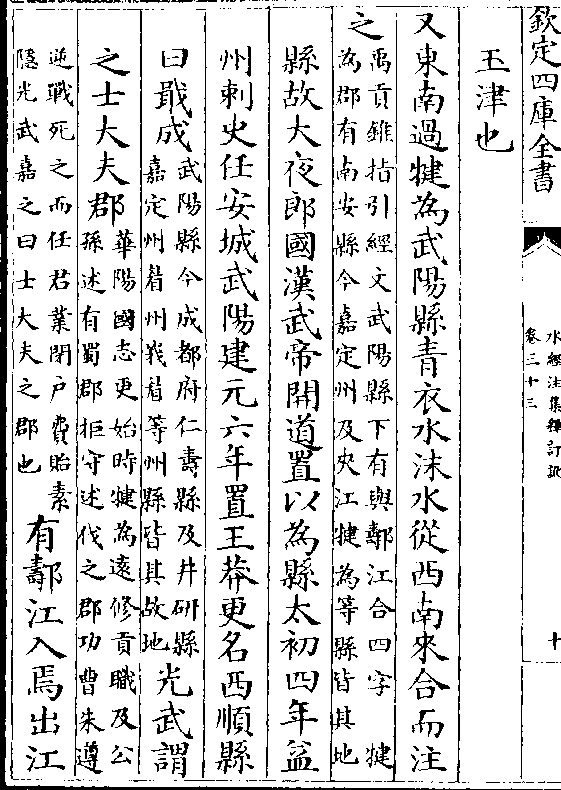 欽定四庫全書
水經注集釋訂訛
卷三十三
十
玉津也
又東南過犍為武陽縣青衣水沫水從西南來合而注
之
禹貢錐指引經文武陽縣下有與鄩江合四字 犍
為郡有南安縣今嘉定州及夾江犍為等縣皆其地
縣故大夜郎國漢武帝開道置以為縣太初四年益
州刺史任安城武陽建元六年置王莽更名西順縣
曰戢成
武陽縣今成都府仁壽縣及井研縣
嘉定州眉州義眉等州縣皆其故地
光武謂
之士大夫郡
華陽國志更始時犍為遠修貢職及公
孫述有蜀郡拒守述伐之郡功曹朱遵
逆戰死之而任君業閉戶費貽素
隱光武嘉之曰士大夫之郡也
有鄩江入焉出江